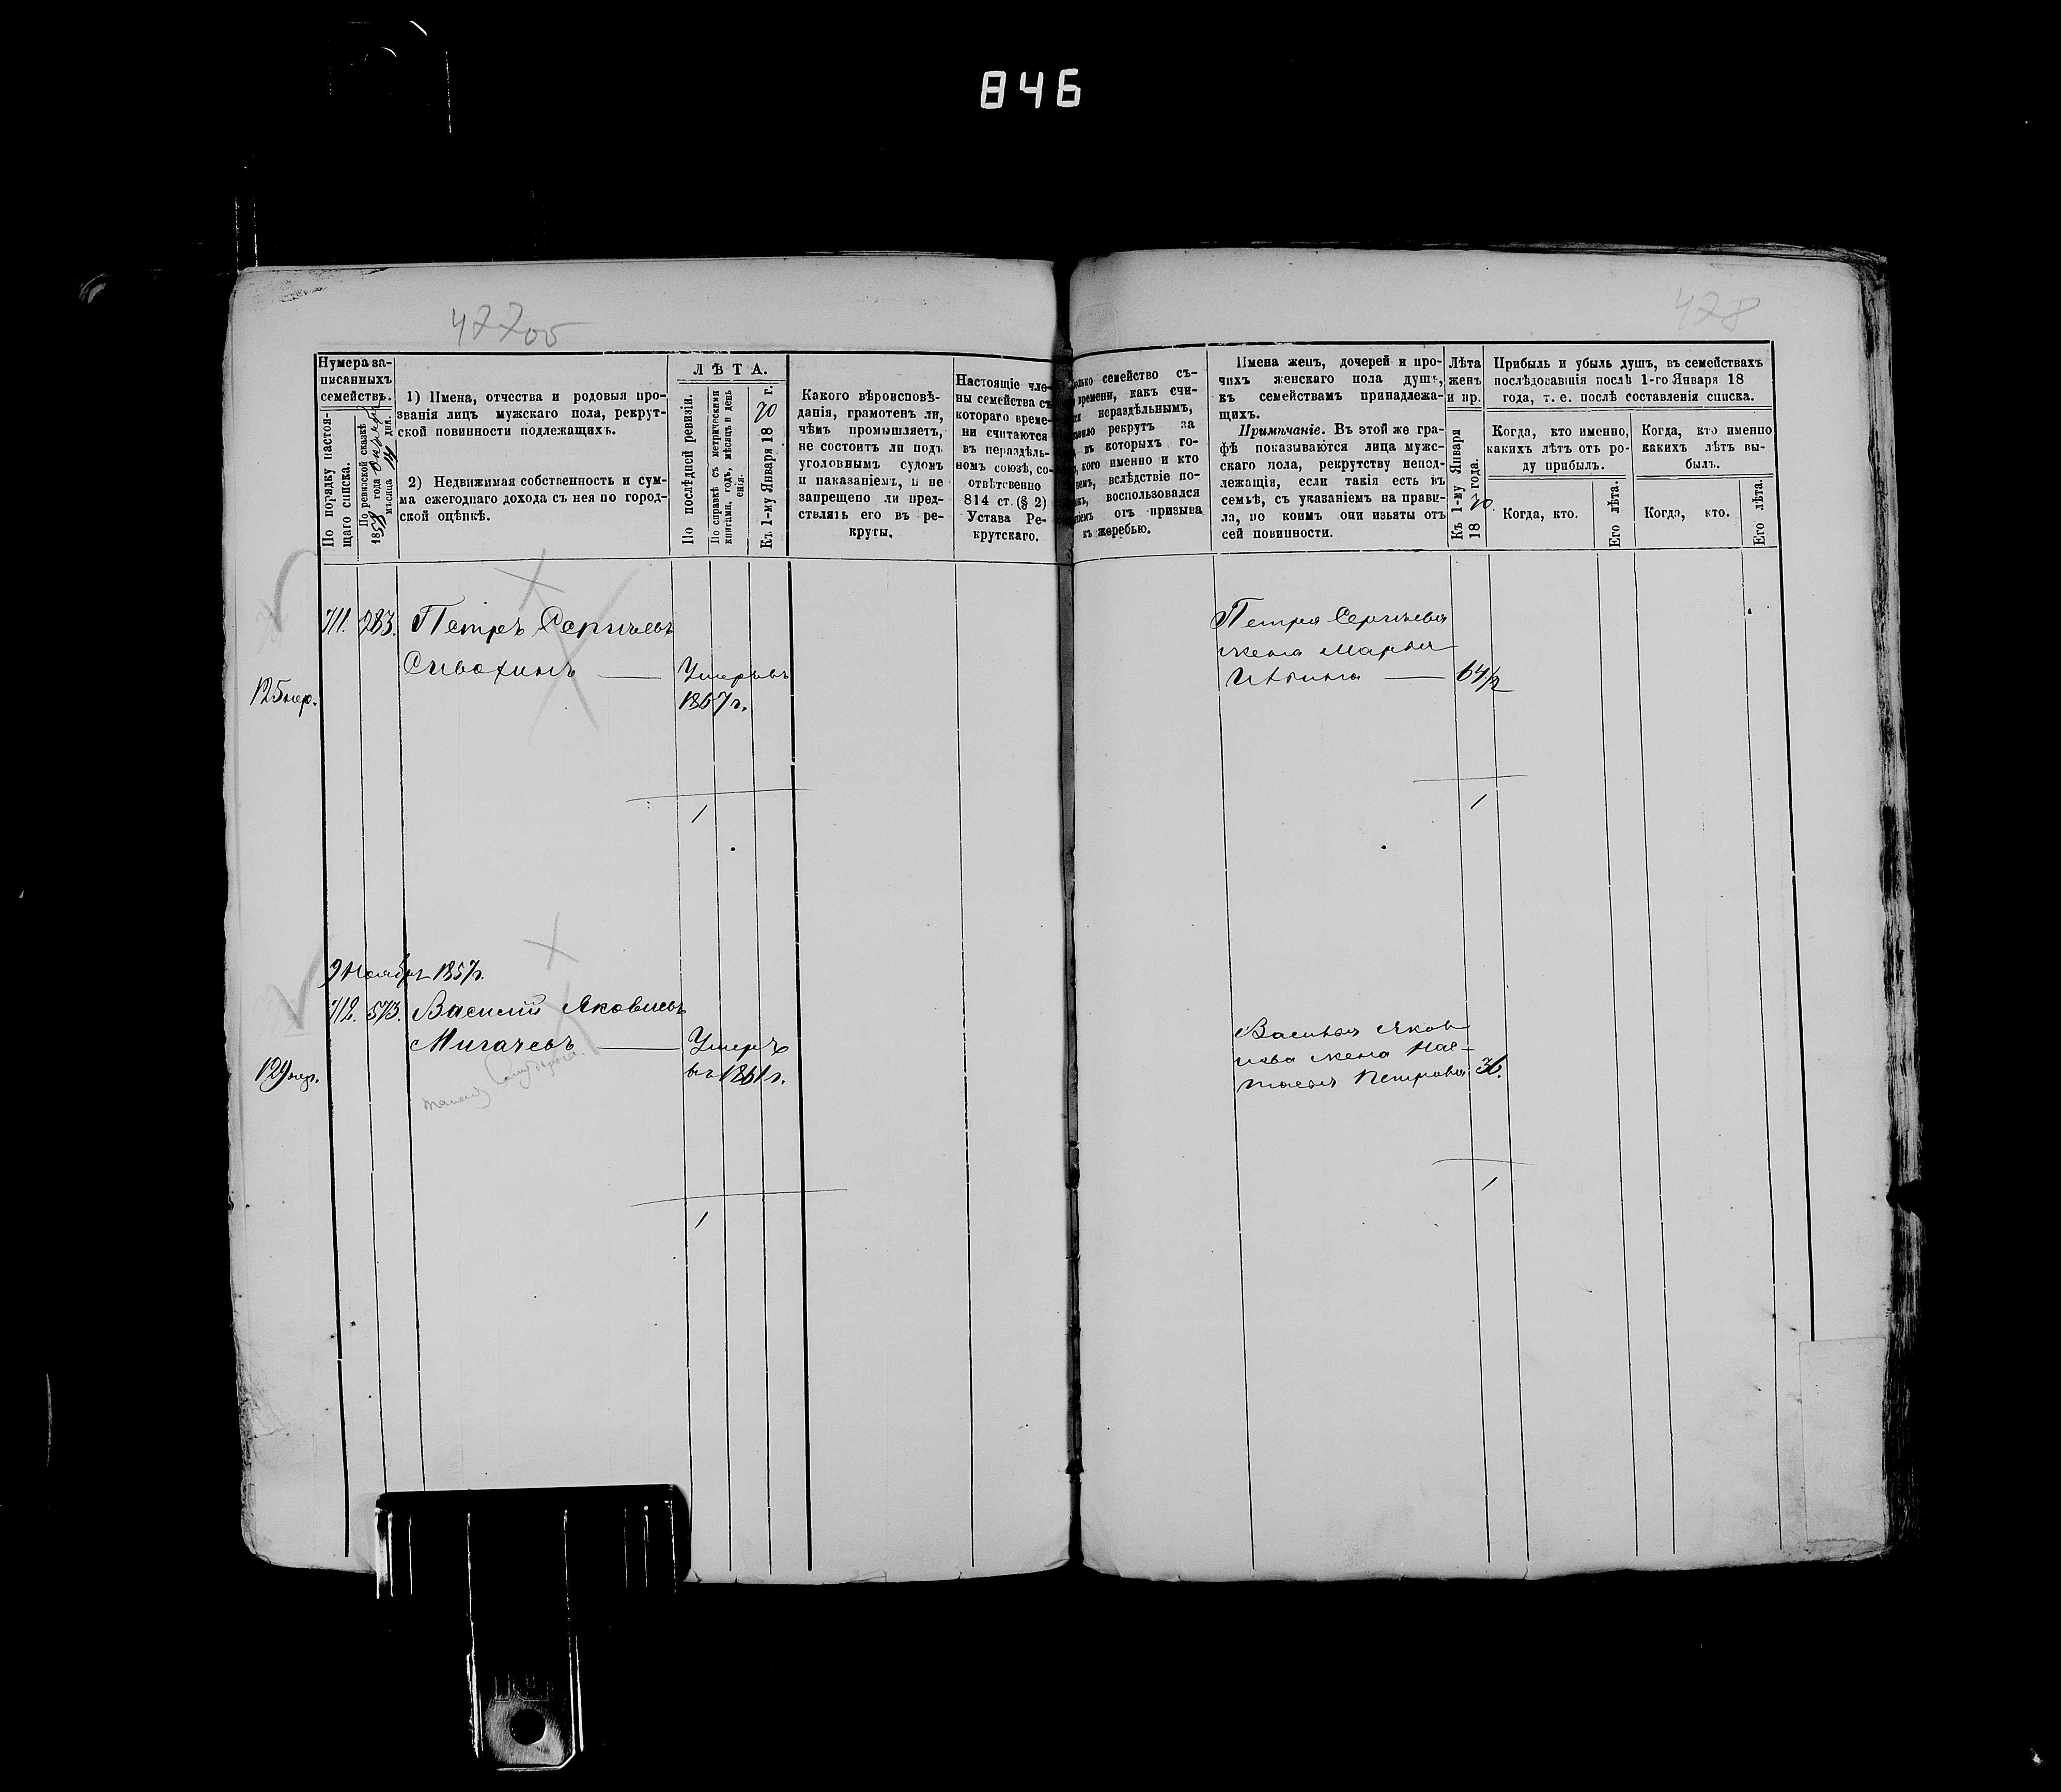 846
477об
478
Нумера за-
писанныхъ
семействъ.
По порядку настоя-
щаго списка.
По ревизской сказкѣ
1858 года
мѣсяца 14 дня.
1) Имена, отчества и родовыя про-
званія лицъ мужскаго пола, рекрут-
ской повинности подлежащихъ.
2) Недвижимая собственность и сум-
ма ежегоднаго дохода съ нея по город-
ской оцѣнкѣ.
ЛѢТА.
По послѣдней ревизіи.
По справкѣ съ метрическими
книгами, годъ, мѣсяцъ и день
Къ 1-му Января 1870 г.
Какого вѣроисповѣ-
данія, грамотенъ ли,
чѣмъ промышляетъ,
не состоитъ ли подъ
уголовнымъ судомъ
и наказаніемъ, и не
запрещено ли пред-
ставлять его въ ре-
круты.
Настоящіе чле-
ны семейства съ
котораго време-
ни считаются
въ нераздѣль-
номъ союзѣ, со-
отвѣтственно
814 ст. (§ 2)
Устава Ре-
крутскаго.
семейство съ-
времени, какъ счи-
нераздѣльнымъ,
рекрутъ за
въ которыхъ го-
кого именно и кто
вслѣдствіе по-
воспользовался
отъ призыва
къ жеребью.
Имена женъ, дочерей и про-
чихъ женскаго пола душъ,
къ семействамъ принадлежа-
щихъ.
Примѣчаніе. Въ этой же гра-
фѣ показываются лица мужс-
скаго пола, рекрутству непод-
лежащія, если такія есть въ
семьѣ, съ указаніемъ на прави-
ла, по коимъ они изъяты отъ
сей повинности.
Лѣта
женъ
и пр.
Къ 1-му Января
1870 года.
Прибыль и убыль душъ, въ семействахъ
послѣдовавшія послѣ 1-го Января 18
года, т. е. послѣ составленія списка.
Когда, кто именно,
какихъ лѣтъ отъ ро-
ду прибылъ.
Когда, кто именно
какихъ лѣтъ вы-
былъ.
Когда, кто.
Его лѣта.
Когда, кто.
Его лѣта.
711. 283. Петръ Сергѣевъ
Сивохинъ — Умеръ въ
1867 г.
125 пер.
Петра Сергѣева
жена Марья
— 64 1/2
1
1
9 Ноября 1857 г.
712. 573. Василій Яковлевъ
Мигачевъ — Умеръ
въ 1861 г.
129 пер.
Василья Яков
лева жена Нас-
тасья Петрова 36.
1
1